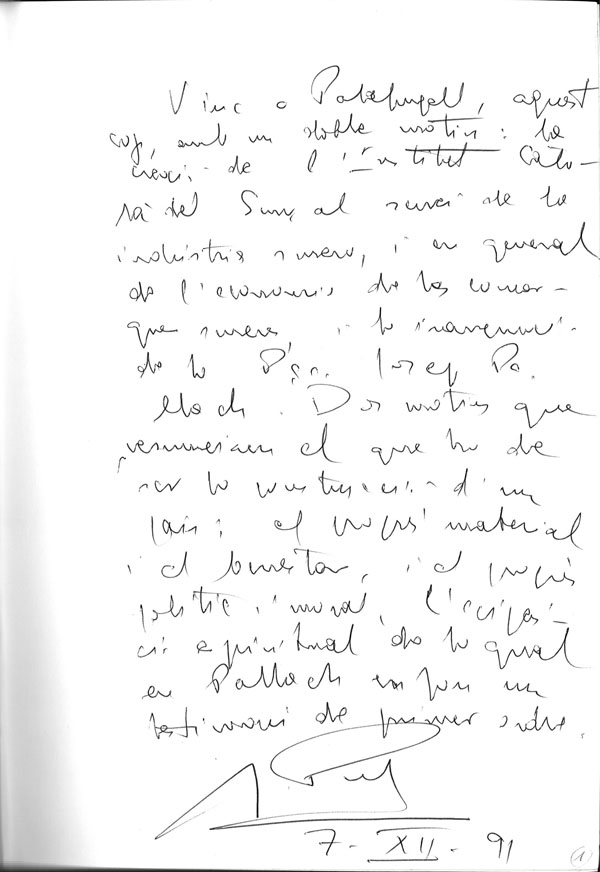 Vinc a Palafrugell, aquest
cop, amb un doble motiu: la
creació de l'Institut Cata-
là del Suro, al servei de la
indústria surera, i en general
de l'economia de les comar-
ques sureres, i la inauguració
de la Pça. Josep Pa-
llach. Dos motius que
resumeixen el que ha de
ser la construcció d'un
país: el progrés material
i el benestar, i el progrés
polític i moral, l'
espiritual de la qual
en Pallach en fou un
testimoni de primer ordre.
7-XII-91
(1)